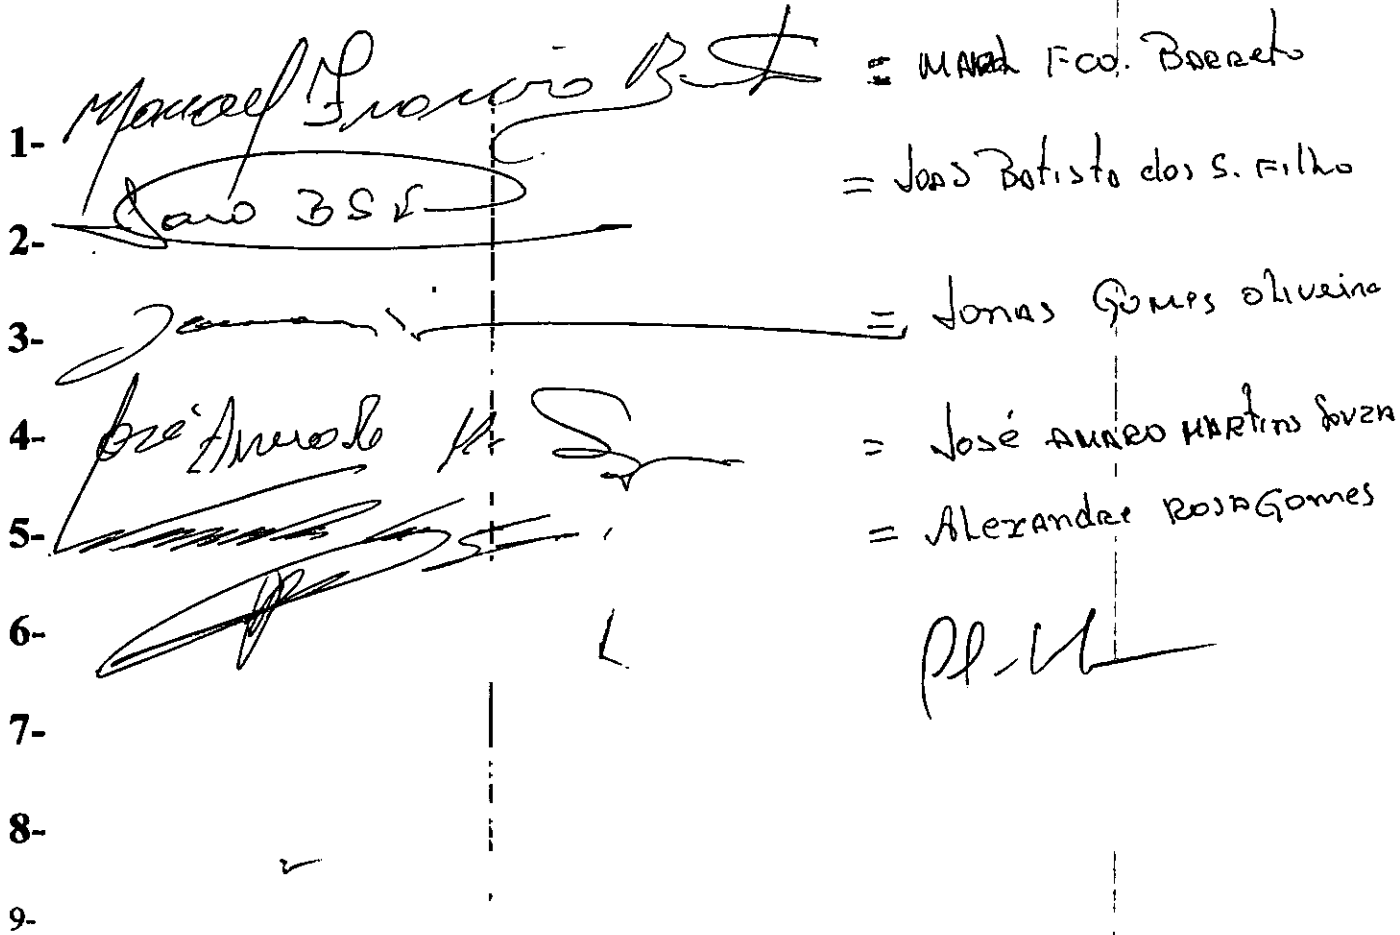 1- Manoel Francisco = Fco. Barreto
2- João BSF = João Batista dos S. Filho
3- = Jonas Gomes Oliveira
4- José Amaro M. = José AMARO MARTINS SOUZA
5- = Alexandre ROSA Gomes
6-
7-
8-
9-